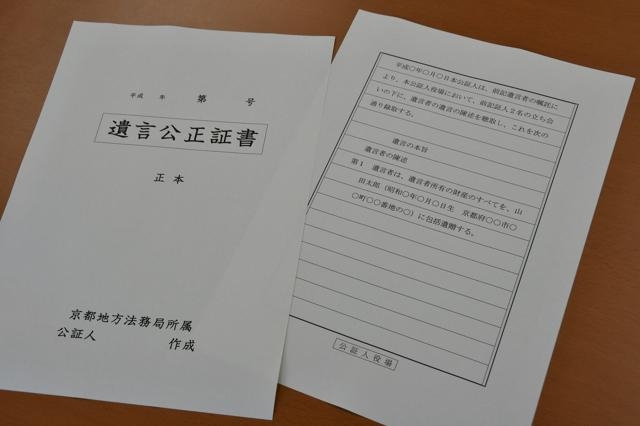 平成　年　第　号
遺言公正証書
正本
京都地方法務局所属
公証人　作成
平成〇年〇月〇日本公証人は、前記遺言者の嘱託に
より、本公証人役場において、前記証人２名の立ち会
いの下に、遺言者の遺言の陳述を聴取し、これを次の
通り録取する。
遺言の本旨
遺言者の陳述
第１　遺言者は、遺言者所有の財産のすべてを、山
田太郎（昭和〇年〇月〇日生　京都府〇〇市〇
〇町〇〇番地の〇）に包括遺贈する。
公証人役場